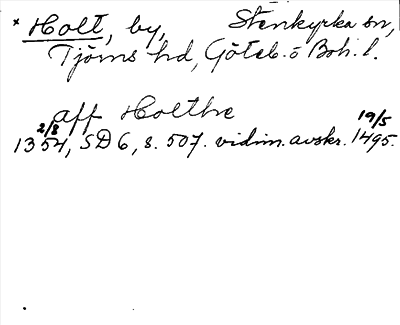 * Holt, by, Stenkyrka sn,
Tjörns hd, Göteb. o Boh. l.
aff Holthe
2/8 19/5
1354, SD 6, s. 507. vidim. avskr. 1495.